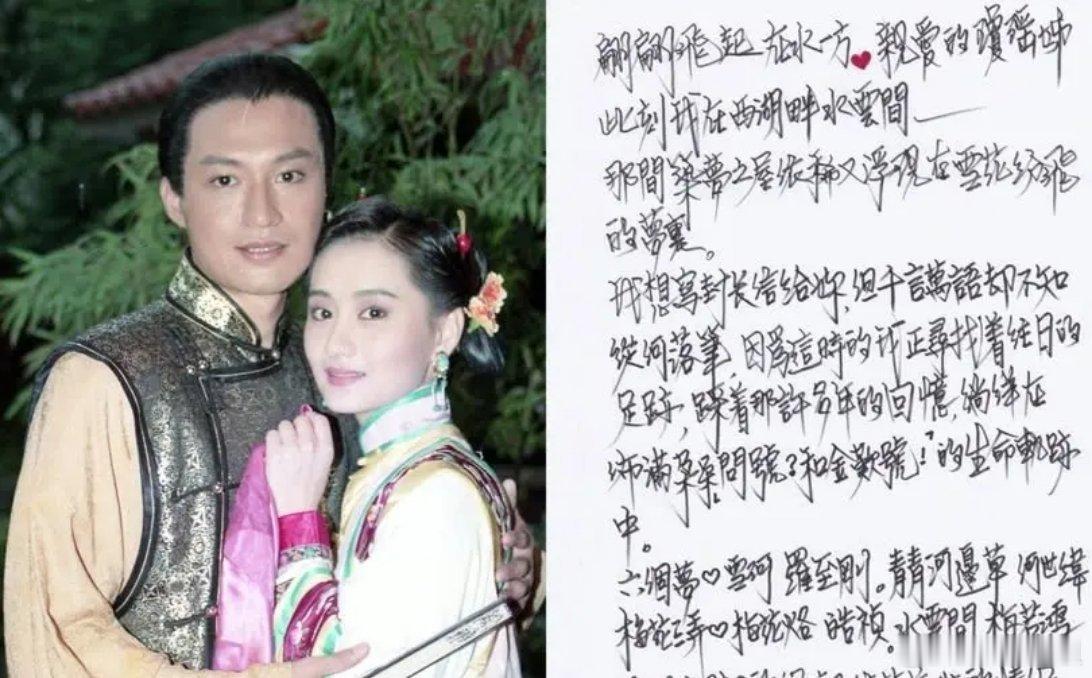 翩翩飛起 在水一方❤親愛的瓊瑤姊
此刻我在西湖畔水雲間——
那間築夢之屋依稀又浮現在雪花紛飛
的夢裏。
我想寫封长信給妳,但千言萬語却不知
從何落筆,因爲這時的我正尋找着往日的
足跡,踩着那許多年的回憶,徜徉在
佈滿朵朵問號?和金歎號!的生命軌跡
中。
六個夢♡雪珂 羅至剛。青青河邊草 何世緯
梅花三弄♡梅花烙 皓禎。水雲間 梅若鴻